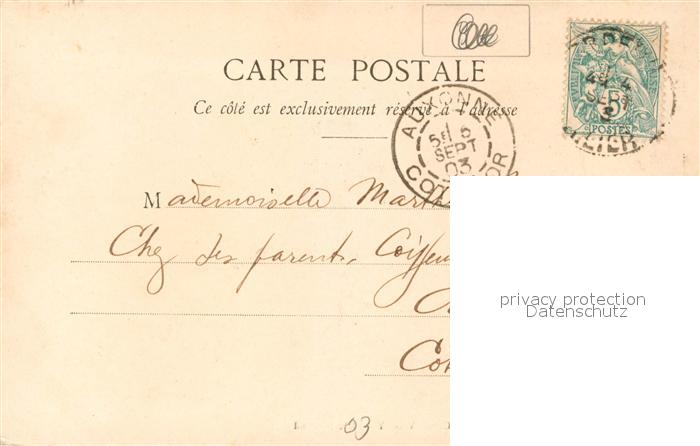 CARTE POSTALE
Ce côté est exclusivement réservé à l'adresse
AUXONNE
5 SEPT
03
CÔTE D'OR
SEPT
5
POSTES
ALLIER
Mademoiselle
Chez ses parents, Coiffeu
privacy protection
Datenschutz
03